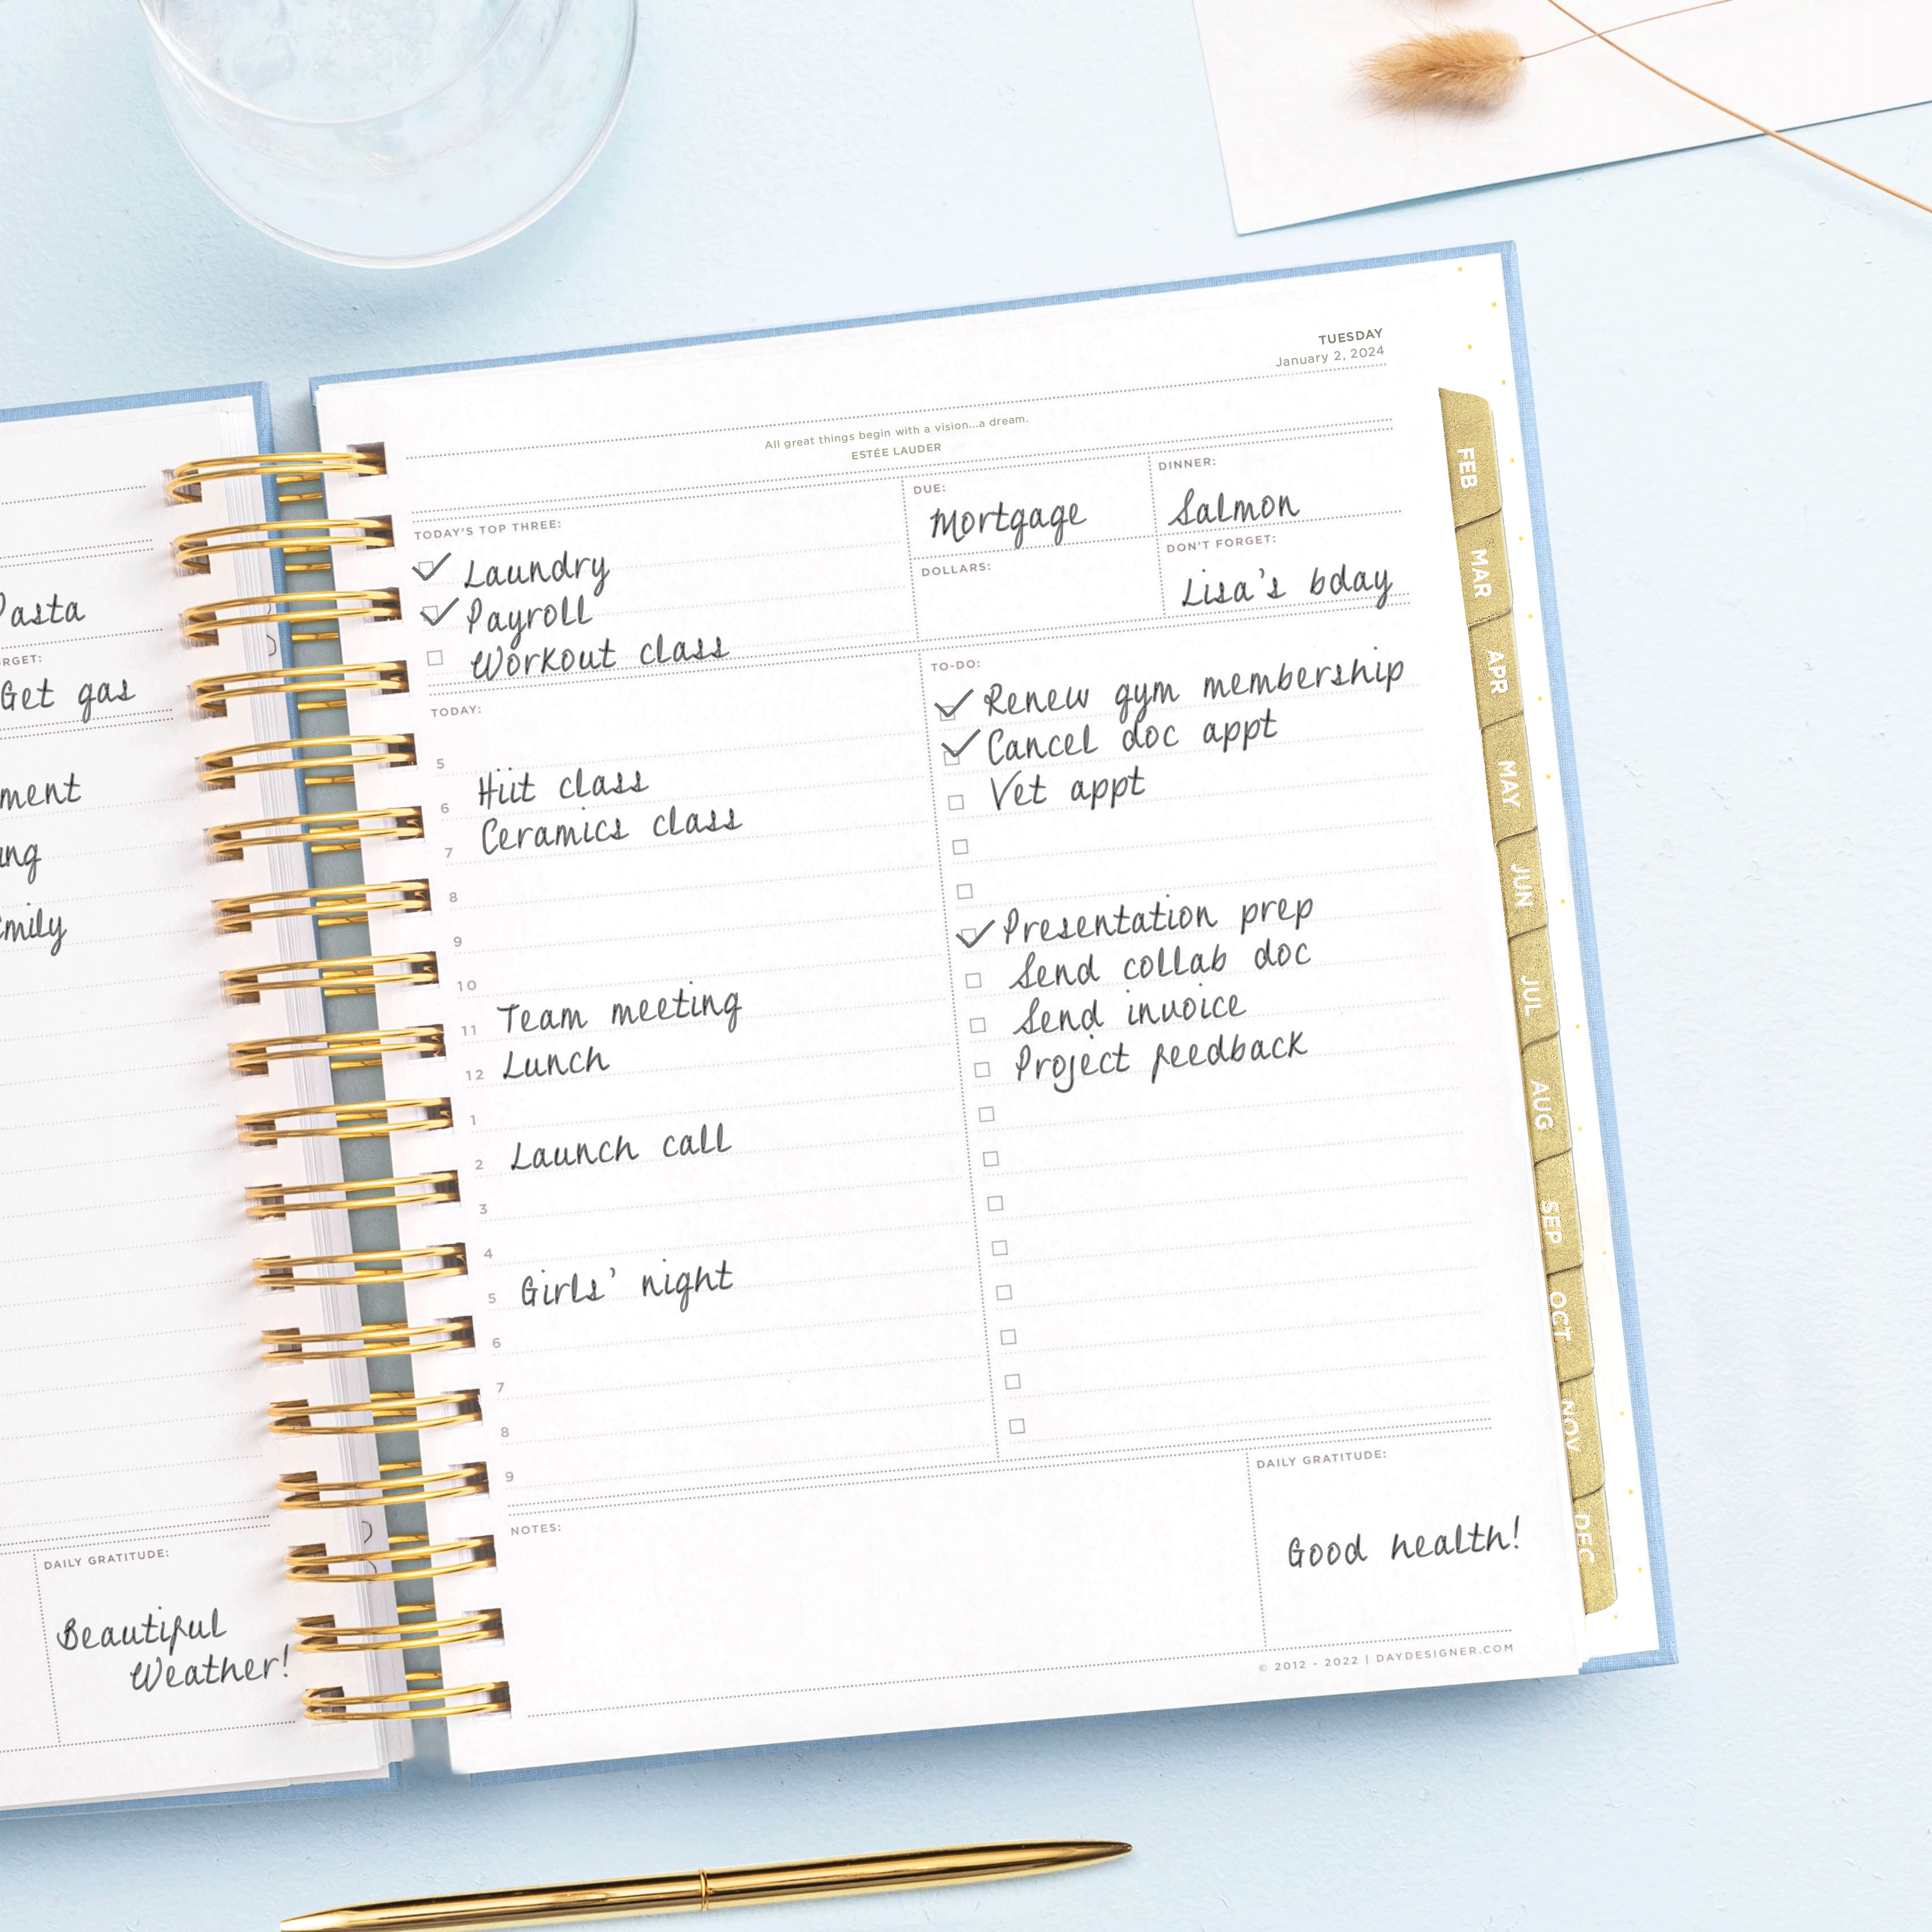 asta
RGET:
Get gas
ment
ng
mily
DAILY GRATITUDE:
Beautiful
Weather!
TUESDAY
January 2, 2024
All great things begin with a vision...a dream.
ESTÉE LAUDER
TODAY'S TOP THREE:
Laundry
Payroll
Workout class
DUE:
Mortgage
DOLLARS:
DINNER:
Salmon
DON'T FORGET:
Lisa's bday
TODAY:
5
6 Hiit class
7 Ceramics class
8
9
10
11 Team meeting
12 Lunch
1
2 Launch call
3
4
5 Girls' night
6
7
8
9
TO-DO:
Renew gym membership
Cancel doc appt
Vet appt
Presentation prep
Send collab doc
Send invoice
Project feedback
NOTES:
DAILY GRATITUDE:
Good health!
© 2012 - 2022 | DAYDESIGNER.COM
FEB
MAR
APR
MAY
JUN
JUL
AUG
SEP
OCT
NOV
DEC